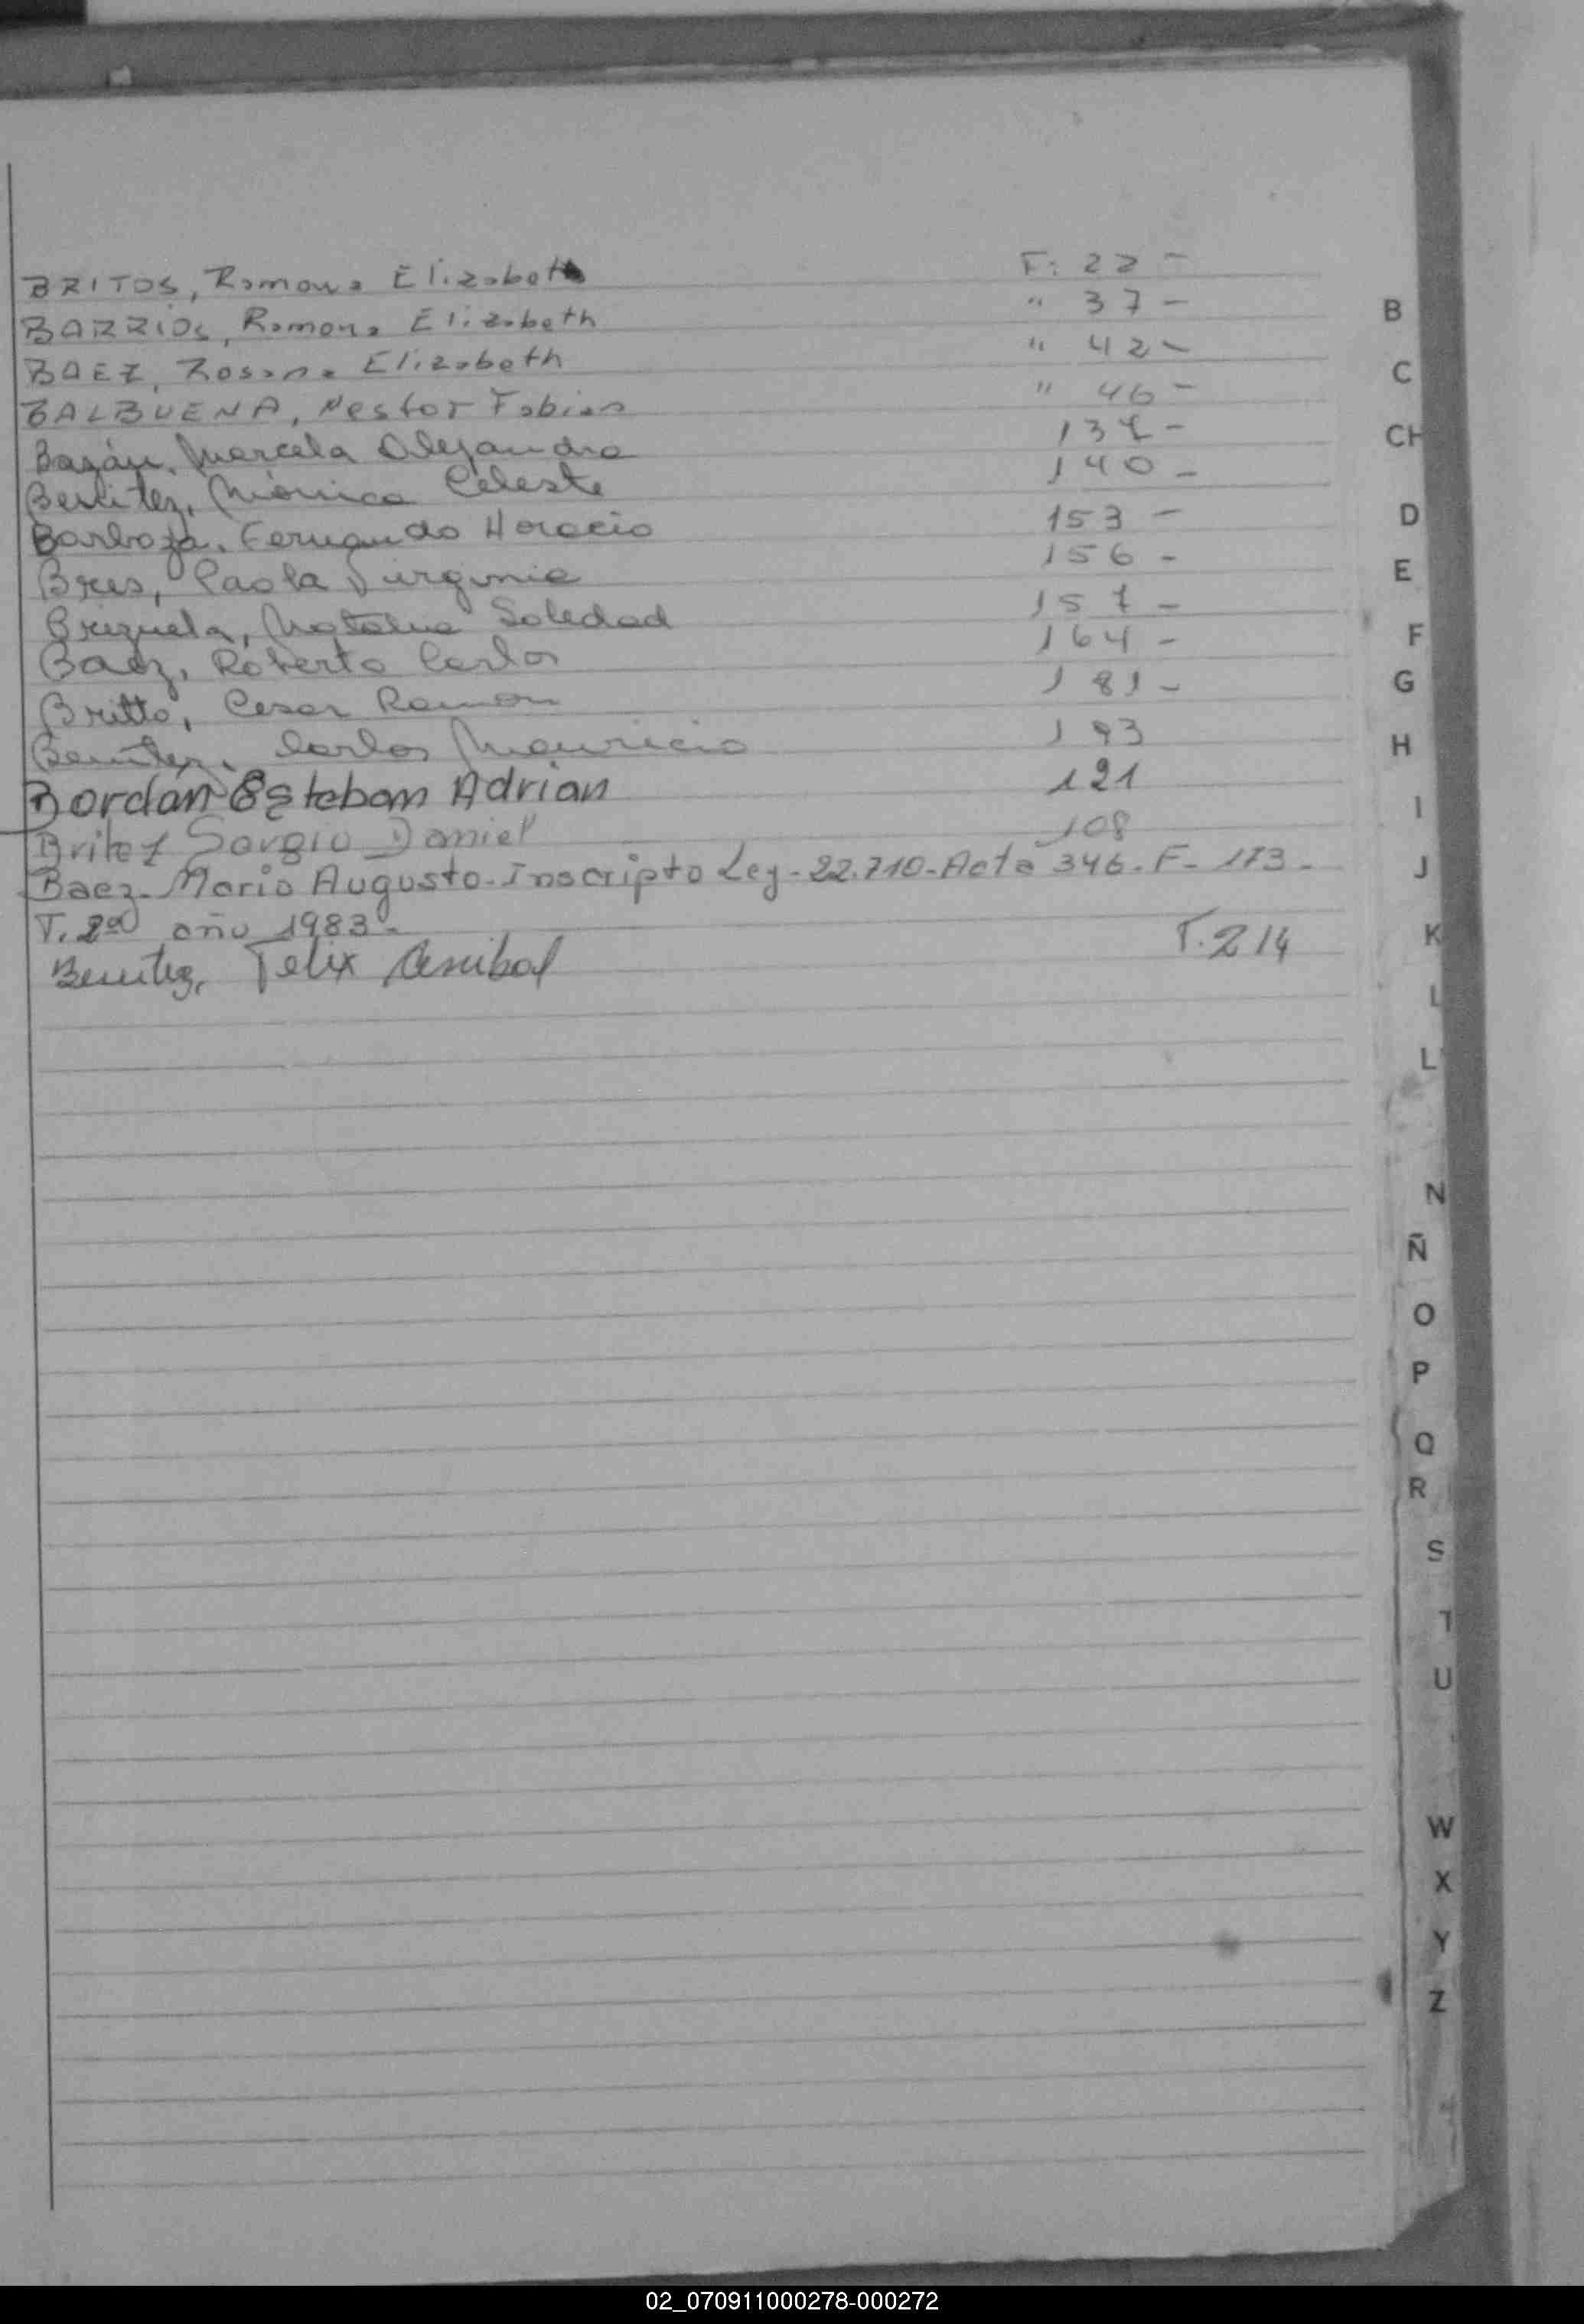 BRITOS, Ramona Elizabeth F: 22 -
BARRIOS, Ramona Elizabeth " 37 -
BAEZ, Rosana Elizabeth " 42 -
BALBUENA, Nestor Fabian " 46 -
Bazán, Marcela Alejandra -
Benitez, Mónica Celeste 140 -
Barboza, Fernando Horacio 153 -
Bres, Paola Virginia 156 -
Brizuela, Natalia Soledad 157 -
Baez, Roberto Carlos 164 -
Britto, Cesar Ramon 181 -
Benitez, Carlos Mauricio 193
Bordan Esteban Adrian 121
Britez Sergio Daniel 108
Baez - Mario Augusto - Inscripto Ley - 22.710 - Acta 346 - F - 173 -
T. 2º año 1983 -
Benitez, Felix Anibal F. 214
B
C
CH
D
E
F
G
H
I
J
K
L
L
N
Ñ
O
P
Q
R
S
T
U
W
X
Y
Z
02_070911000278-000272